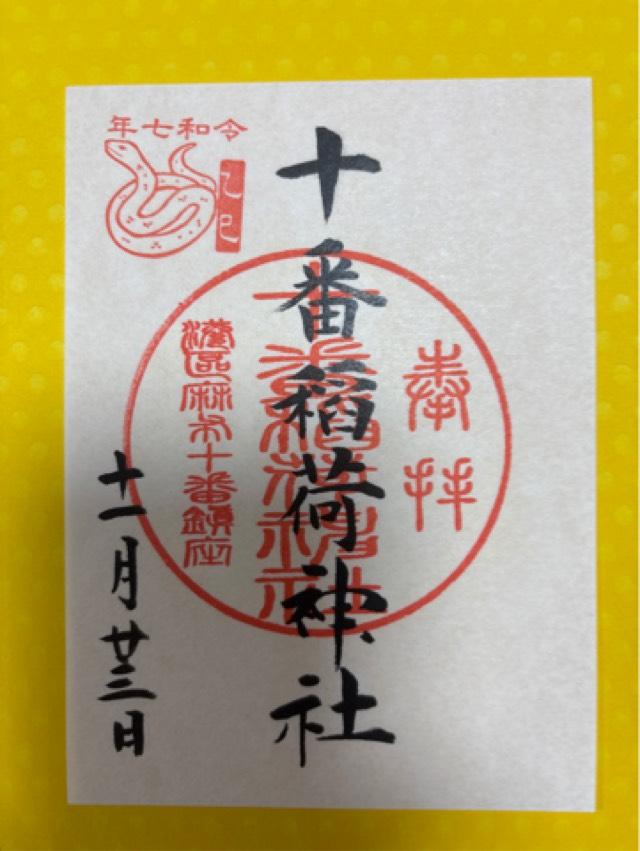 令和七年
乙巳
奉拝
十番稲荷神社
十番稲荷神社
港区麻布十番鎮座
十一月廿三日